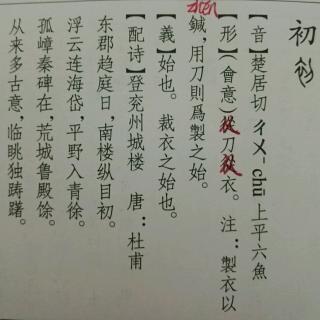 初
【音】楚居切 ㄔㄨ chū 上平六魚
【形】（會意）從刀從衣。注：製衣以
鍼，用刀則爲製之始。
【義】始也。裁衣之始也。
【配诗】登兖州城楼 唐：杜甫
东郡趋庭日，南楼纵目初。
浮云连海岱，平野入青徐。
孤嶂秦碑在，荒城鲁殿馀。
从来多古意，临眺独踌躇。